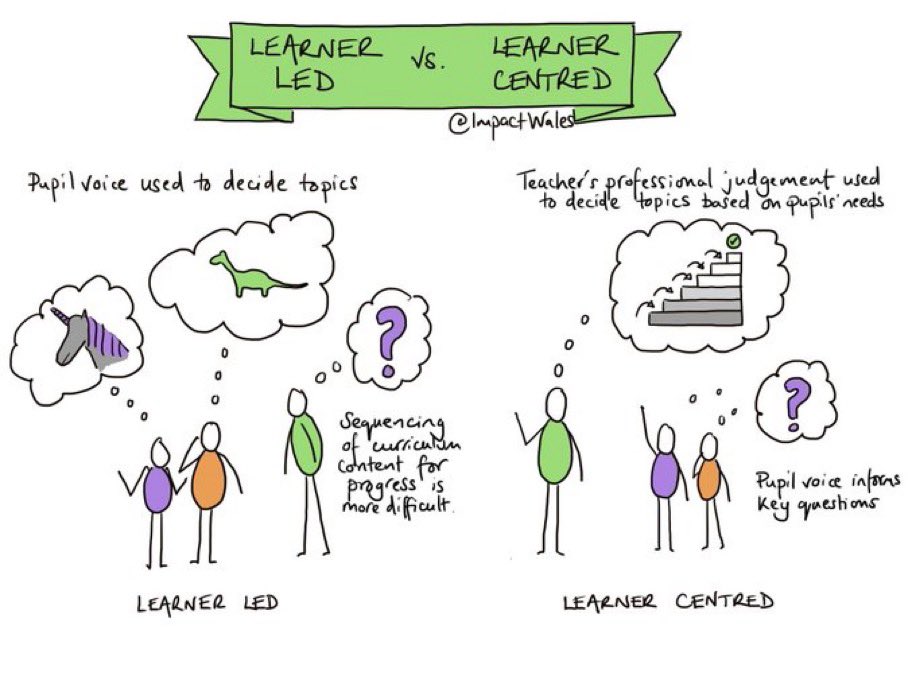 LEARNER LED
vs.
LEARNER CENTRED
@ImpactWales
Pupil voice used to decide topics
Sequencing
of curriculum
content for
progress is
more difficult.
LEARNER LED
Teacher's professional judgement used
to decide topics based on pupils' needs
Pupil voice informs
key questions
LEARNER CENTRED